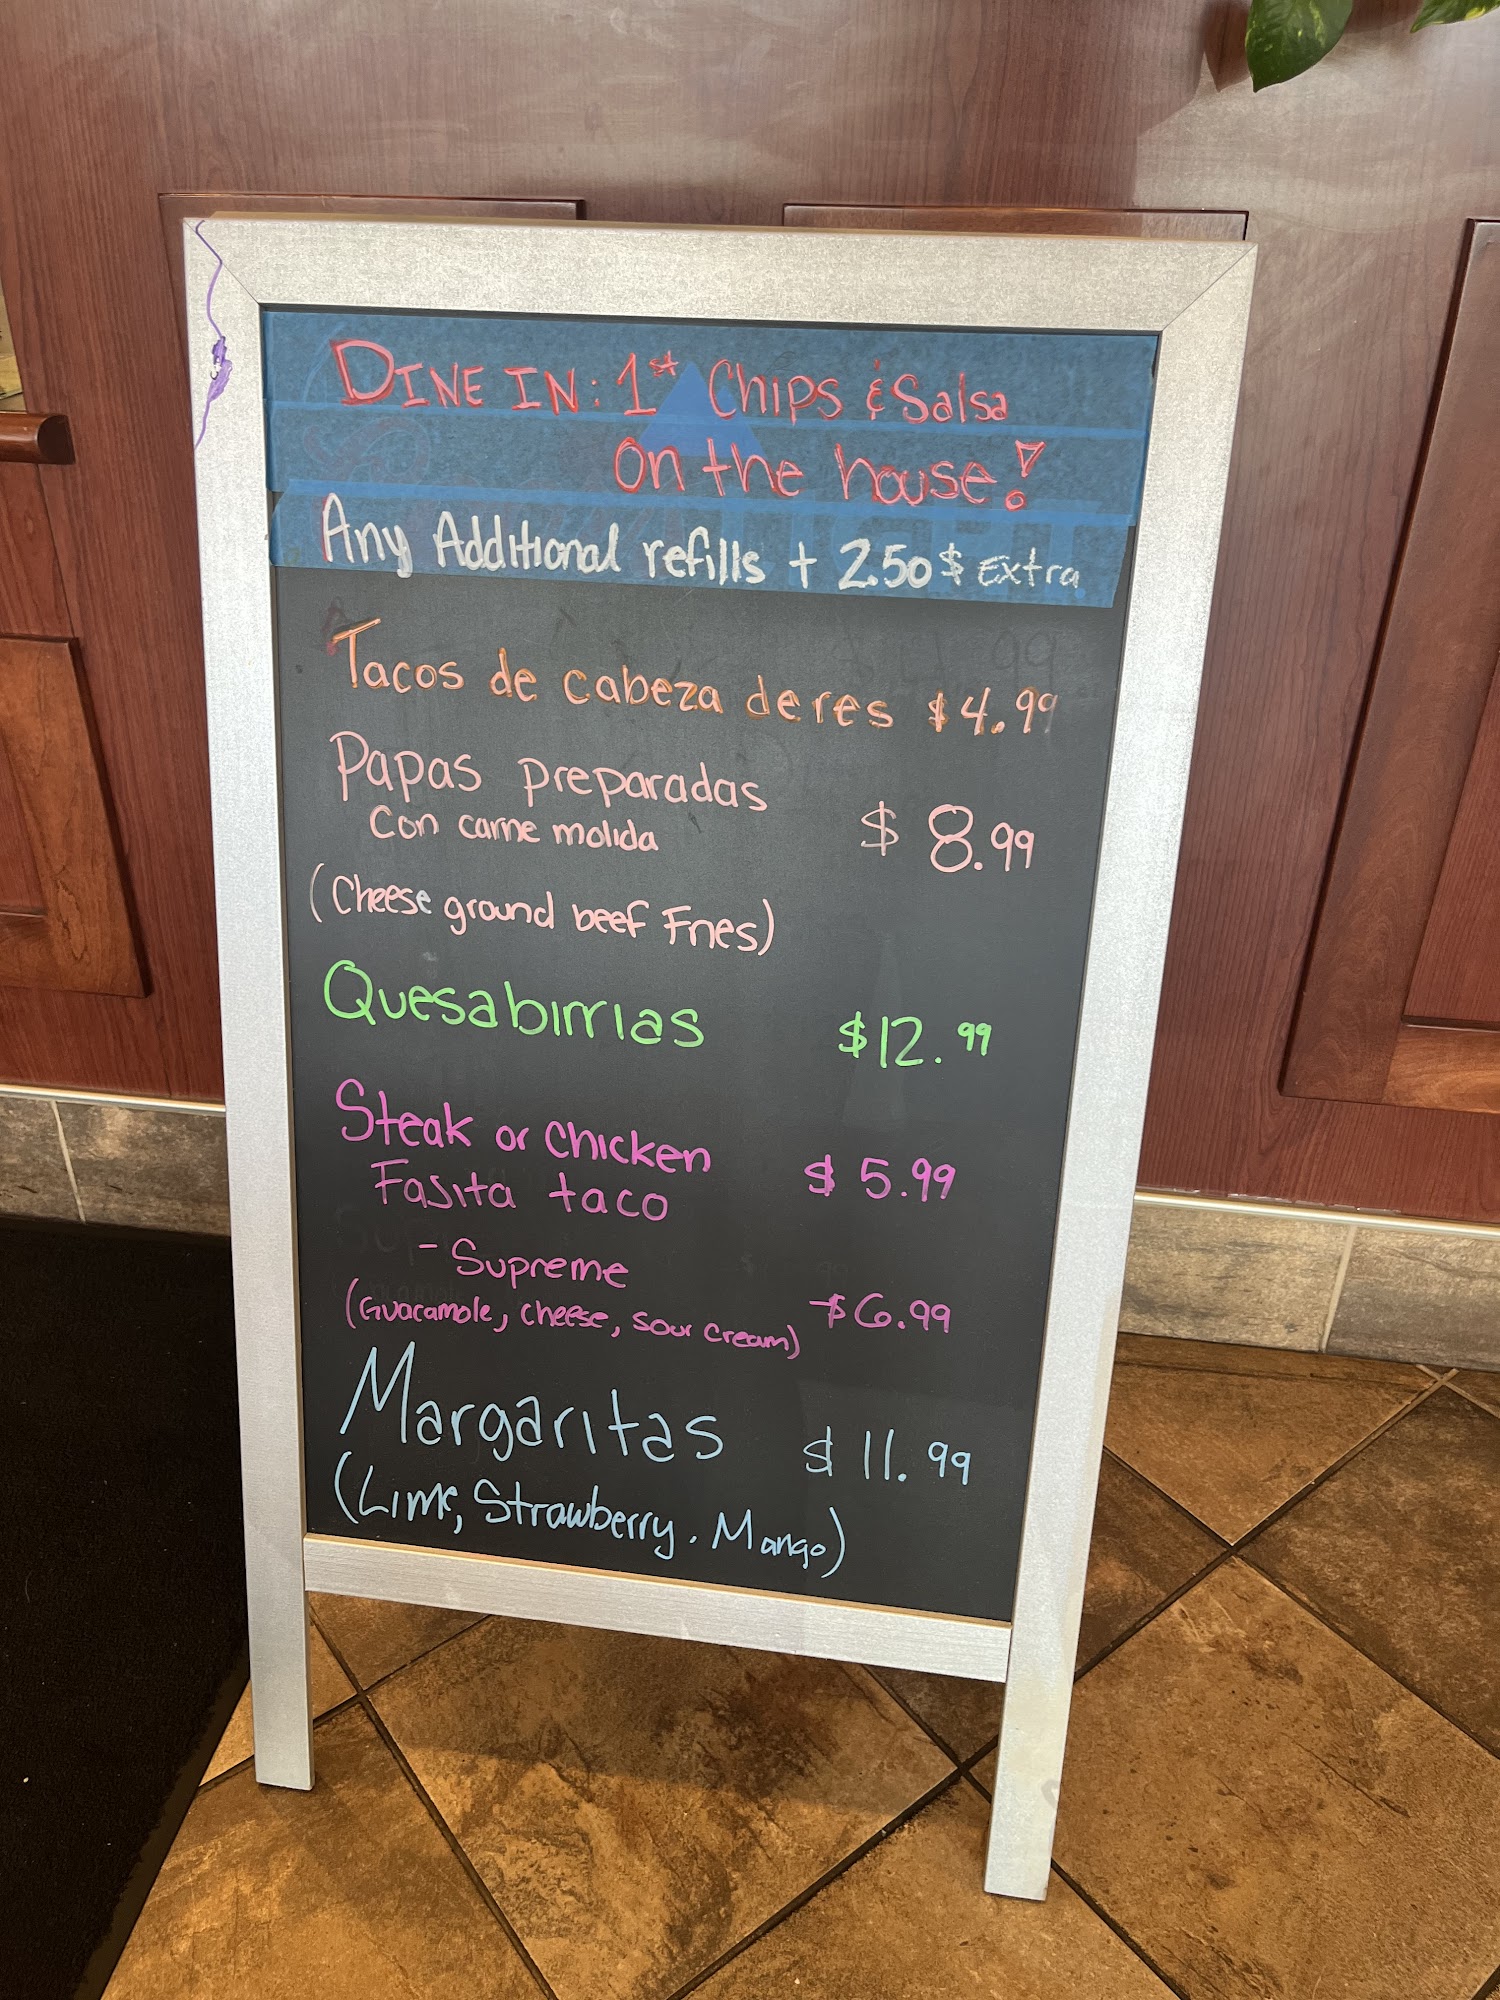 DINE IN: 1st Chips & Salsa
On the house!
Any Additional refills + 2.50$ Extra
Tacos de cabeza de res $4.99
Papas preparadas
Con carne molida $8.99
(Cheese ground beef Fries)
Quesabirrias $12.99
Steak or Chicken
Fasita taco $5.99
- Supreme
(Guacamole, cheese, sour cream) $6.99
Margaritas $11.99
(Lime, Strawberry. Mango)